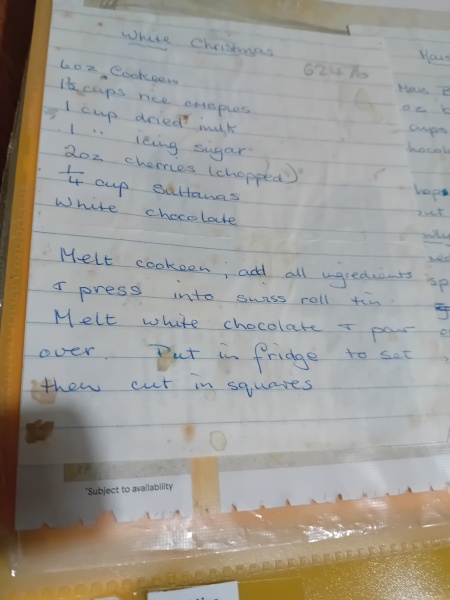 White Christmas
6oz Cookeen
1½ cups rice crispies
1 cup dried milk
1 " icing sugar
2oz cherries (chopped)
1/4 cup sultanas
White chocolate
Melt cookeen, add all ingredients
& press into swiss roll tin.
Melt white chocolate & pour
over. Put in fridge to set
then cut in squares
*Subject to availability
oz
cups